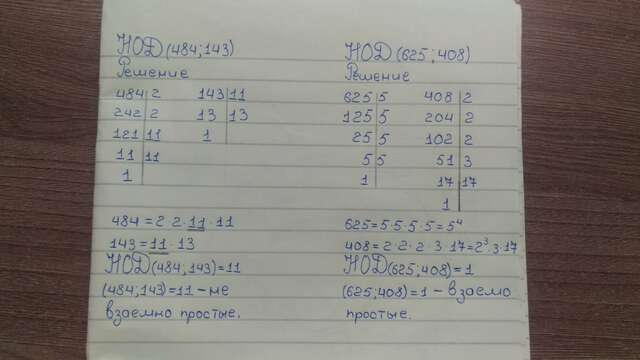 НОД(484;143)
Решение
484|2 143|11
242|2 13|13
121|11 1
11|11
1
484=2·2·11·11
143=11·13
НОД(484;143)=11
(484;143)=11-не
взаемно простые.
НОД(625;408)
Решение
625|5 408|2
125|5 204|2
25|5 102|2
5|5 51|3
1 17|17
1
625=5·5·5·5=5⁴
408=2·2·2·3·17=2³·3·17
НОД(625;408)=1
(625;408)=1-взаемо
простые.